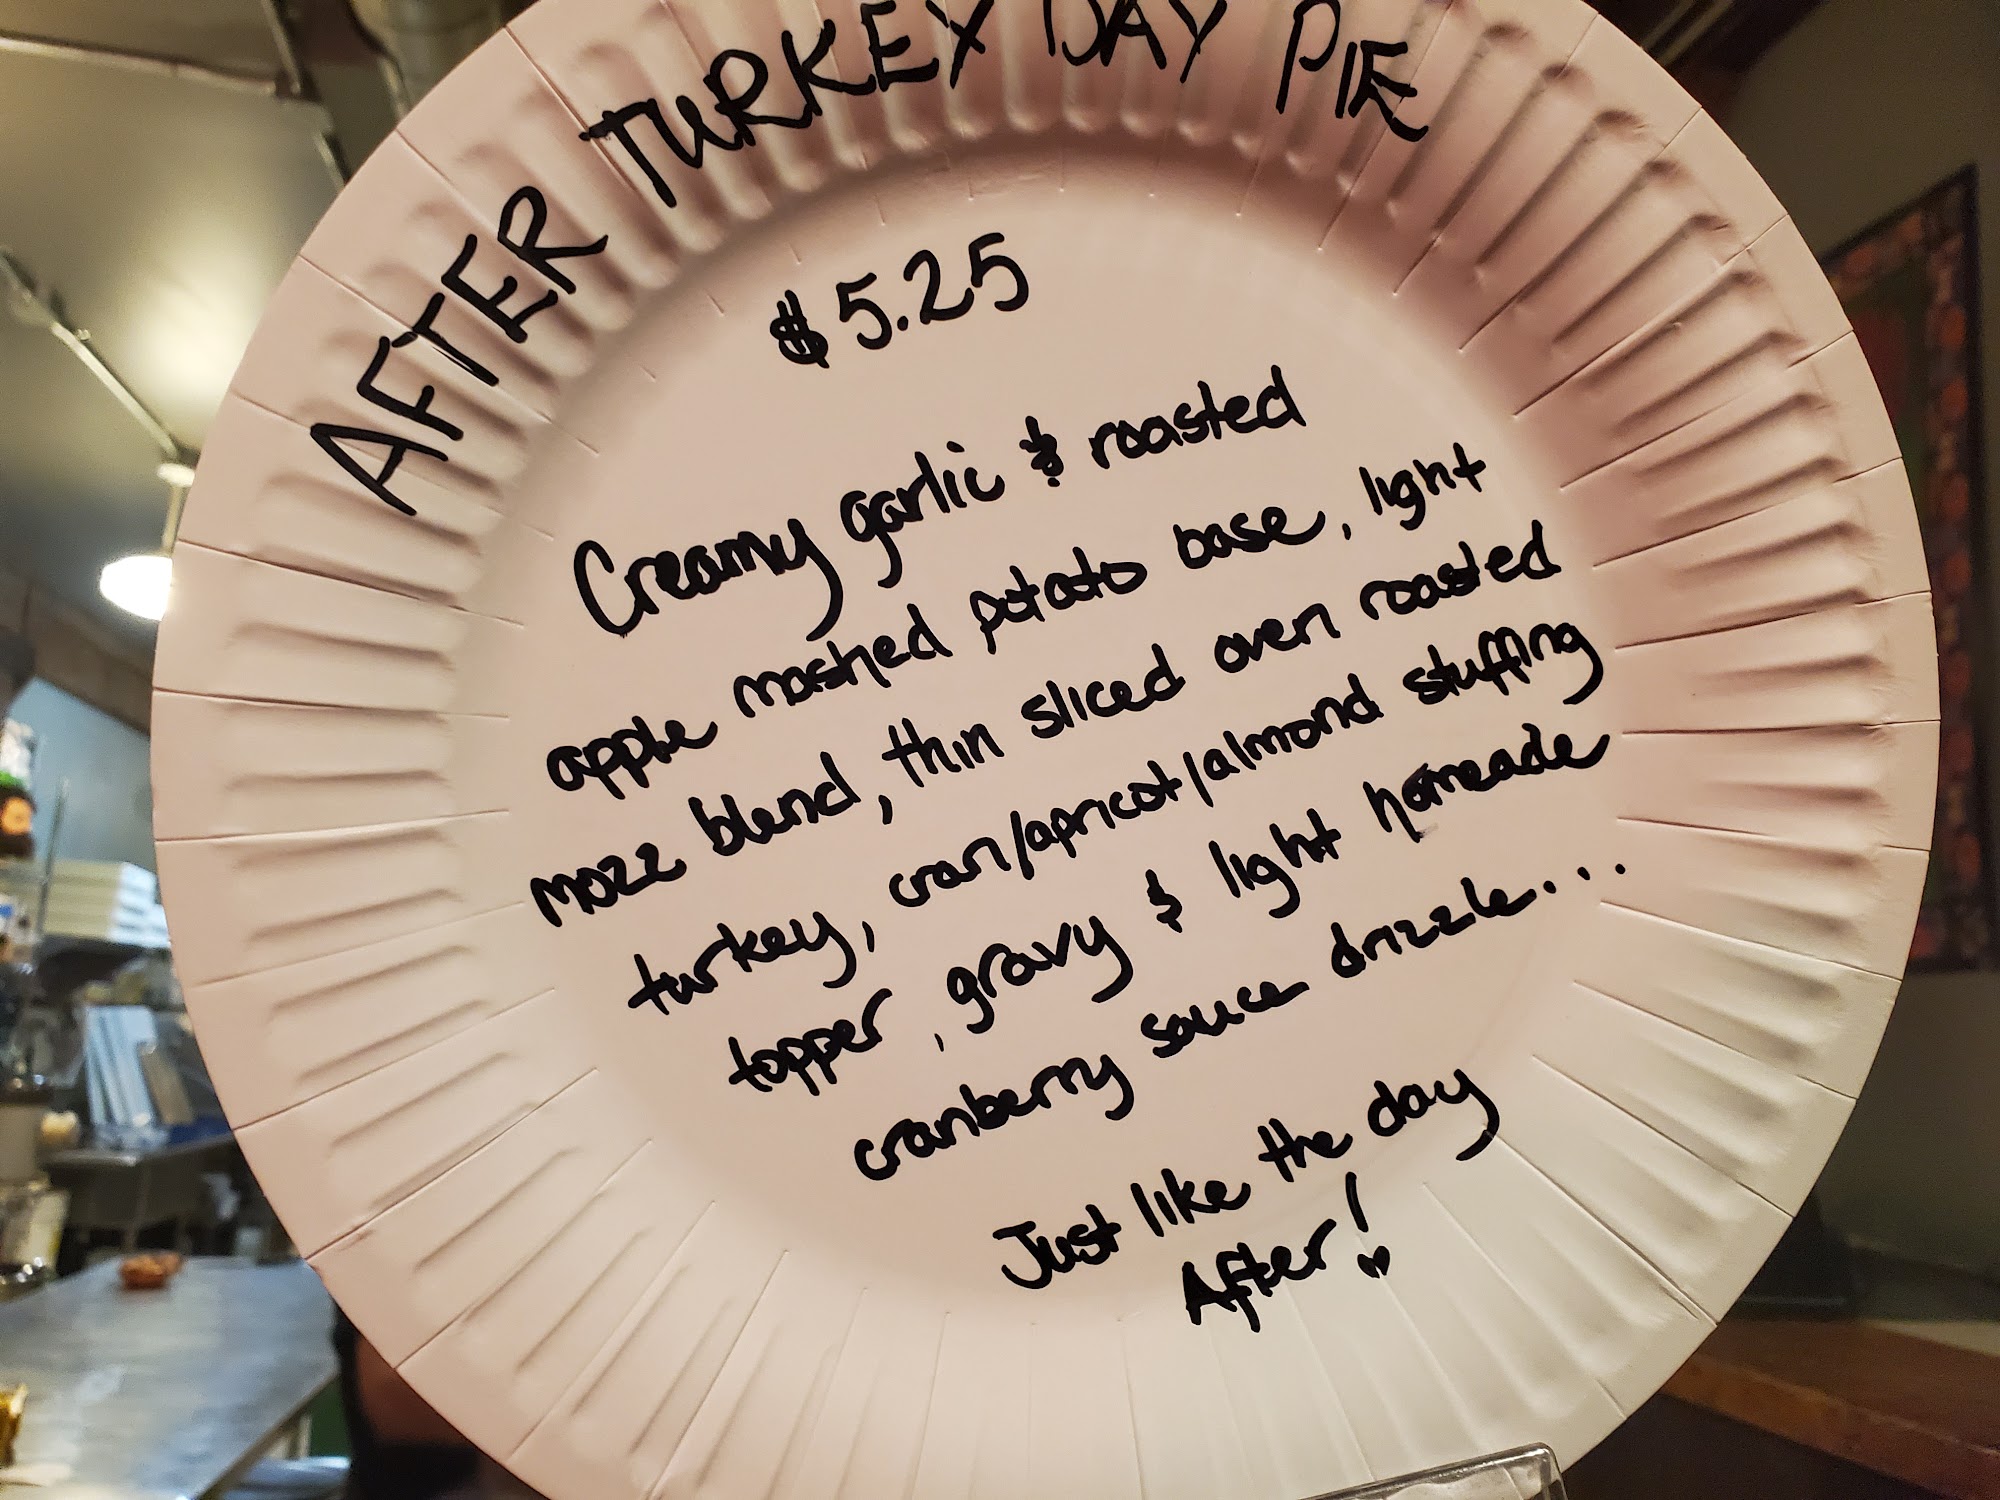 AFTER TURKEY DAY PIE
$5.25
Creamy garlic & roasted
apple mashed potato base, light
mozz blend, thin sliced oven roasted
turkey, cran/apricot/almond stuffing
topper, gravy & light homeade
cranberry sauce drizzle...
Just like the day
After!